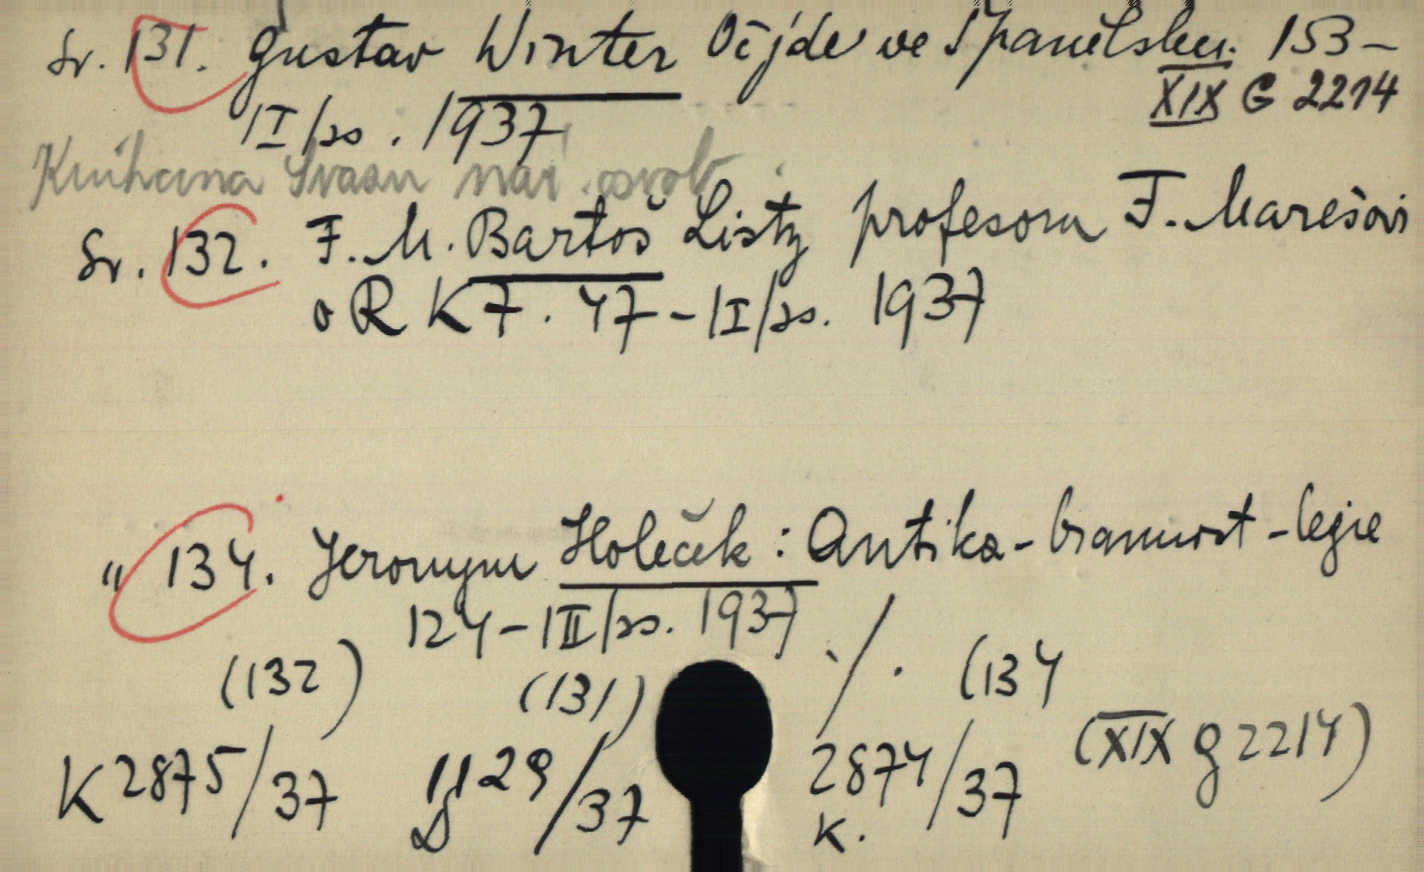 Sv. 131. Gustav Winter Oč jde ve Španělsku. 153-
XIX G 2214
1I/ss. 1937
Knihovna Svazu nár. osvob.
Sv. 132. F. M. Bartoš Listy profesoru F. Marešovi
o RKZ. 47-1I/ss. 1937
" 134. Jeronym Holeček: Antika-brannost-legie
124-1II/ss. 1937 ./.
(132) (131) (134
K 2875/37 1129/37 2874/37 (XIX g 2214)
D K.